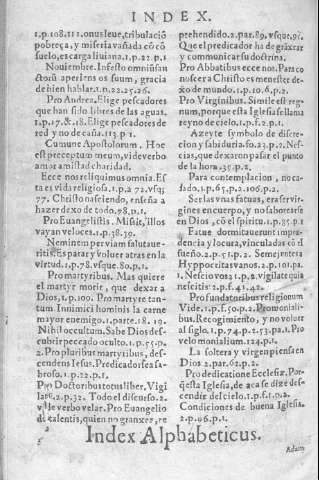 INDEX.
1.p.108.111.onus leue, tribulació
pobreça, y miseria vañada có có
suelo, es carga liuiana. 1.p.22.p.1
Nouiembre. Infesto omniũ san
ctorũ aperiens os suum, gracia
de bien hablar. 1.p.22.25.26.
Pro Andrea. Elige pescadores
que han sido libres de las aguas.
1.p.17.&.18. Elige pescadores de
red y no de caña. 113.p.1.
Cumune Apostolorum, Hoc
est preceptum meum, vi de verbo
amor amistad charidad.
Ecce nos reliquimus omnia. Es
ta es vida religiosa. 1.p.a 72.vsq;
77. Christo nasciendo, enseña a
hazer dexo de todo. 98.p.1.
Pro Euangelistis Misit, illos
vayan veloces. 1.p.38.39.
Neminem per viam salutaue-
ritis. Es parar y voluer atras en la
virtud. 1.p.78.vsque.80.p.1.
Pro martyribus. Mas quiere
el martyr morir, que dexar a
Dios. 1.p.100. Pro martyre tan-
tum Innimici hominis la carne
mayor enemigo. 1.parte.18.19.
Nihil occultum. Sabe Dios des-
cubrir peccado oculto. 1.p.55.p.
2. Pro pluribus martyribus, des-
cendens Iesus. Predicador sea sa-
broso. 1.p.22.p.1.
Pro Doctoribus totus liber, Vigi
late. 2.p.32. Todo el discurso. 2.
Ve verbo velar. Pro Euangelio
de talentis, quien no granxee, re
prehendido. 2.par.89.vsque.91.
Que el predicador ha de grãxear
y communicar su doctrina.
Pro Abbatibus ecce nos. Para co
noscer a Christo es menester de-
xo de mundo. 1.p.10.6.p.2.
Pro Virginibus. Simile est reg-
num, porque esta Iglesia se llama
reyno de cielo. 1.p.f.2.p.1.
Azeyte symbolo de discre-
cion y sabiduria. fo.23.p.2. Nes-
cias, que dexaron pasar el punto
de la hora. 35.p.2.
Para contemplacion, no ca-
sado. 1.p.65.p.2.106.p.2.
Ser las vnas fatuas, era ser vir-
gines en cuerpo, y no saborearse
en Dios, có el spiritu. 1.p.35.p.1
Fatue dormitauerunt impru-
dencia y locura, vinculadas có el
sueño. a.2.p.51.p.2. Semejantera
Hyppocritas vanos. 2.p.101.pa.
1. Nescio vos 1.p.2. vigilate quia
nescitis. 2.p.f.41.42.
Pro fundatoribus religionum
Vide. 1.p.f.50.p.2. Pro monialî-
bus. Recogimiento, y no voluer
al siglo. 1.p.74.p.2.53.pa.1. Pro
velo monialium. 124.p.1.
La soltera y virgen piensa en
Dios 2.par.62.p.2.
Pro dedicatione Ecclesiæ, Por-
q̃ esta Iglesia, de aca se dize des-
cendir del cielo. 1.p.f.1.p.2.
Condiciones de buena Iglesia.
2.p.96.p.1.
Index Alphabeticus.
Adam